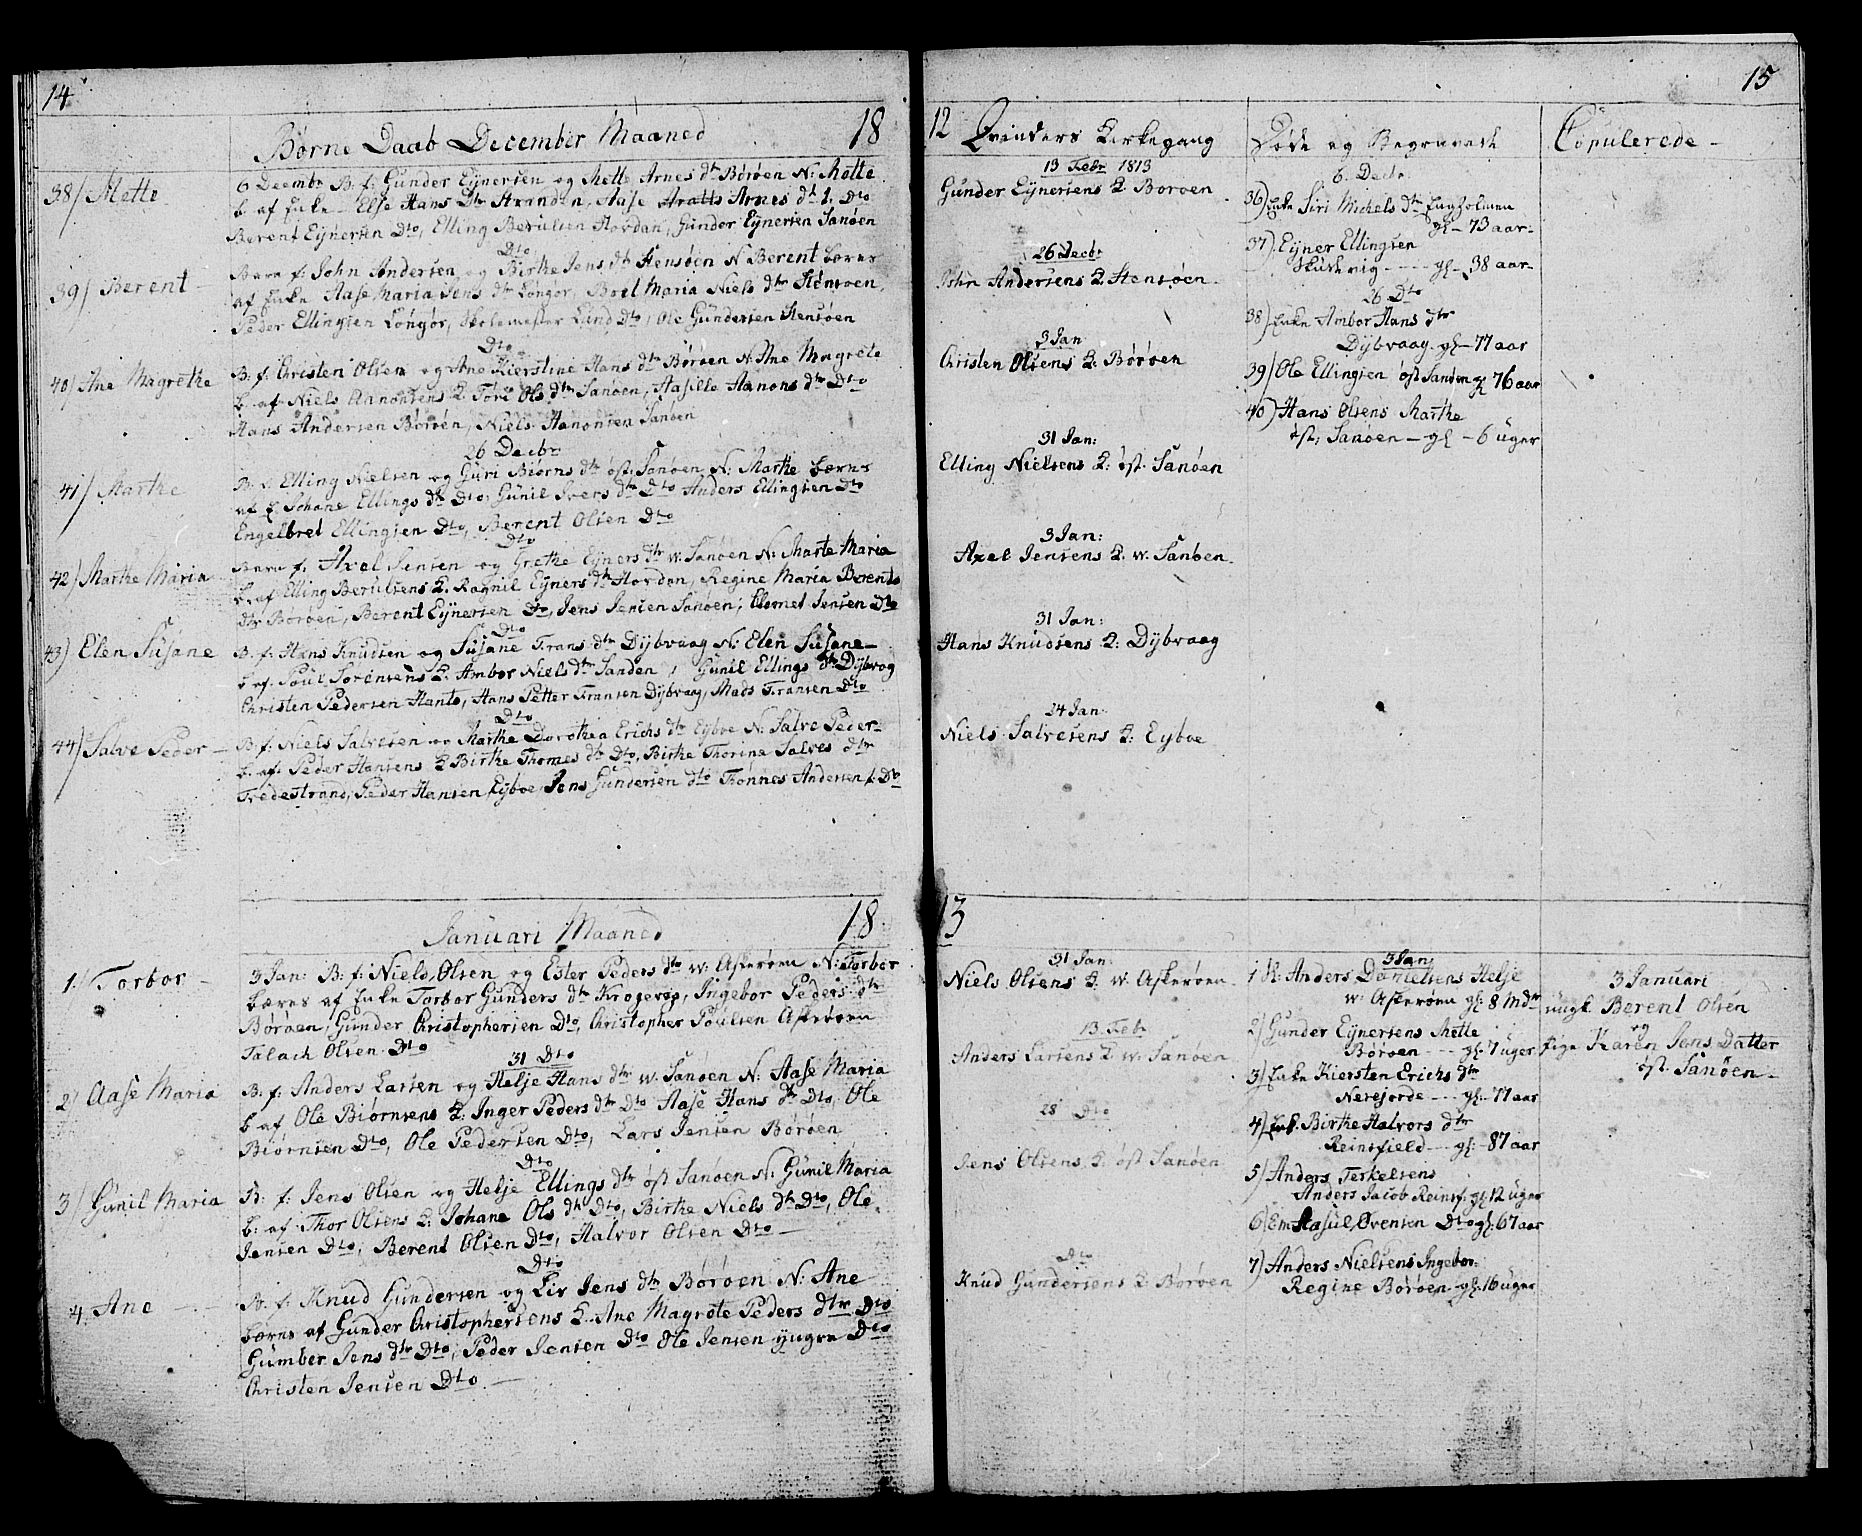 14
Børne Daab December Maaned 18
38/ Mette
6 Decembr B. f: Gunder Eÿnersen og Mette Arnes dtr Børøen N: Mette
b. af Enke Else Hans Dtr Stranden, Aase Aratts Arnes dtr Dto
Berent Eÿnersen Dto, Elling Berulsen Hordan, Gunder Eÿnersen Sanøen
Dto
39/ Berent
Barn f: John Andersen og Birthe Jens dtr Stensøen N Berent bæres
af Enke Aase Maria Jens dtr Longør, Boel Maria Niels dtr Stensøen,
Peder Ellingsen Longør, Skolemester Lund Dto, Ole Gundersen Stensøen
Dto
40/ Ane Magrethe
B. f: Christen Olsen og Ane Kierstine Hans dtr Børøen N. Ane Magrete
b. af Niels Aanonsens K. Tore Ols dtr Sanøen, Aasille Aanons dtr Dto
Hans Andersen Børøen, Niels Aanonsen Sanøen
26 Decbr
41/ Marthe
B. f. Elling Nielsen og Guri Biørns dtr øst. Sanøen N: Marthe bæres
af E. Johane Ellings dtr Dto, Gunil Ivers dtr Dto Anders Ellingsen Dto
Engelbret Ellingsen Dto, Berent Olsen Dto
Dto
42/ Marthe Maria
Barn f. Axel Jensen og Grethe Eÿners dtr w. Sanøen N: Marte Maria
b. af Elling Berulsens K. Ragnil Eÿners dtr Hordan, Regine Maria Berents
dtr Børøen, Berent Eÿnersen Dto, Jens Jensen Sanøen, Clemet Jensen Dto
Dto
43) Elen Susane
B. f: Hans Knudsen og Susane Frans dtr Dÿbvaag N: Elen Susane
b. af. Poul Sørensens K. Ambor Niels dtr Sanden, Gunil Ellings dtr Dÿbvag
Christen Pedersen Hanto, Hans Petter Fransen Dÿbvaag, Mads Fransen Dto
Dto
44) Salve Peder
B. f: Niels Salvesen og Marthe Dorothea Erichs dtr Eÿboe N: Salve Peder
b. af: Peder Hansens K Birthe Thomes dtr Dto, Birthe Thorine Salves dtr
Tredestrand, Peder Hansen Eÿboe, Jens Gundersen dto Tønnes Andersen Dto
Januari Maaned 18
1/ Torbor
3 Jan: B: f: Niels Olsen og Ester Peders dtr w: Askerøen N: Torbor
bæres af Enke Torbor Gunders dtr Krogerøp, Ingebor Peders dtr
Børøen, Gunder Christophersen Dto, Christopher Poulsen Askerøen
Talach Olsen Dto
31 Dto
2/ Aase Maria
B. f: Anders Larsen og Helje Hans dtr w. Sanøen N: Aase Maria
b af Ole Biørnsens K: Inger Peders dtr Dto Aase Hans dtr Dto, Ole
Biørnsen Dto, Ole Pedersen Dto, Lars Jensen Børøen
Dto
3/ Gunil Maria
B: f: Jens Olsen og Helje Ellings dtr øst Sanøen N: Gunil Maria
b. af Thor Olsens K: Johane Ols dtr Dto, Birthe Niels dtr Dto, Ole
Jensen Dto, Berent Olsen Dto, Halvor Olsen Dto
Dto
4. Ane
B. f: Knud Gundersen og Liv Jens dtr Børøen N: Ane
bæres af Gunder Christophersens K. Ane Magrete Peders dtr Dto
Gumber Jens dtr Dto, Peder Jensen Dto Ole Jensen ÿngre Dto
Christen Jensen Dto
15
12 Qvinders Kirkegang
13 Febr 1813
Gunder Eÿnersens K Borøen
26 Decbr
John Andersens K Stensøen
3 Jan
Christen Olsens K. Børøen
31 Jan:
Elling Nielsens K: øst. Sanøen
3 Jan:
Axel Jensens K. w. Sanøen
31 Jan:
Hans Knudsens K: Dÿbvaag
24 Jan
Niels Salvesens K: Eÿboe
13
31 Jan:
Niels Olsens K w. Askerøen
13. Febr
Anders Larsens K w. Sanøen
28 Dto
Jens Olsens K. øst Sanøen
Dto
Knud Gundersens K Børøen
Døde og Begravede
6. Decbr
36) Enke Siri Michels dtr Furholmen
gl 73 aar
37) Eÿner Ellingsen
Skudevig gl 38 aar
26 Dto
38) Enke Ambor Hans dtr
Dÿbvaag gl 77 aar
39) Ole Ellingsen øst Sanøen gl 76 aar
40) Hans Olsens Marthe
øst, Sanøen gl 6 uger
3 Jan
1 N: Anders Danielsens Helje
w: Askerøen gl: 8 Mdr
2) Gunder Eÿnersens Mette
Børøen gl: 7 uger
3) Enke Kiersten Erichs dtr
Nerejorde gl: 77 aar
4) Enk. Birthe Halvors dtr
Reinsfield gl: 87 aar
5) Anders Terkelsens
Anders Jacob Reinsf: gl: 12 uger
6) Em Aasul Evensen Dto gl. 67 aar
7) Anders Nielsens Ingebor
Regine Børøen gl. 16 uger
Copulerede
3 Januari
ungk Berent Olsen
og
Pige Karen Jans Datter
øst. Sanøen